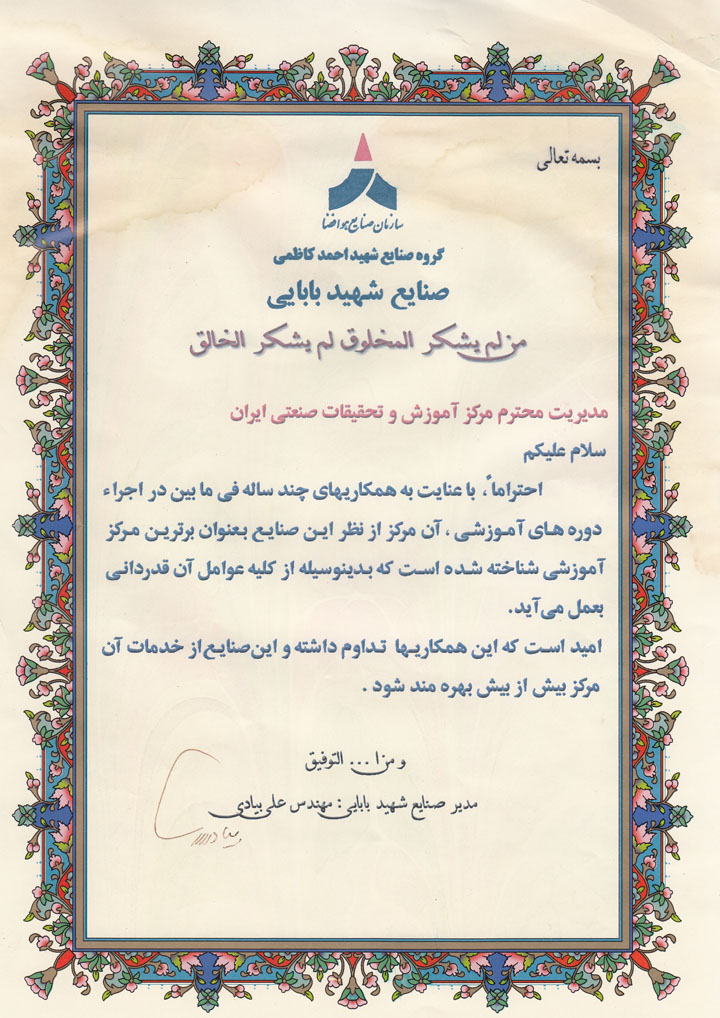 بسمه تعالی
سازمان صنایع هوافضا
گروه صنایع شهید احمد کاظمی
صنایع شهید بابایی
من لم یشکر المخلوق لم یشکر الخالق
مدیریت محترم مرکز آموزش و تحقیقات صنعتی ایران
سلام علیکم
احتراماً، با عنایت به همکاریهای چند ساله فی ما بین در اجراء
دوره های آموزشی ، آن مرکز از نظر این صنایع بعنوان برترین مرکز
آموزشی شناخته شده است که بدینوسیله از کلیه عوامل آن قدردانی
بعمل می‌آید.
امید است که این همکاریها تداوم داشته و این صنایع از خدمات آن
مرکز بیش از بیش بهره مند شود .
و من ا... التوفیق
مدیر صنایع شهید بابایی : مهندس علی بیادی